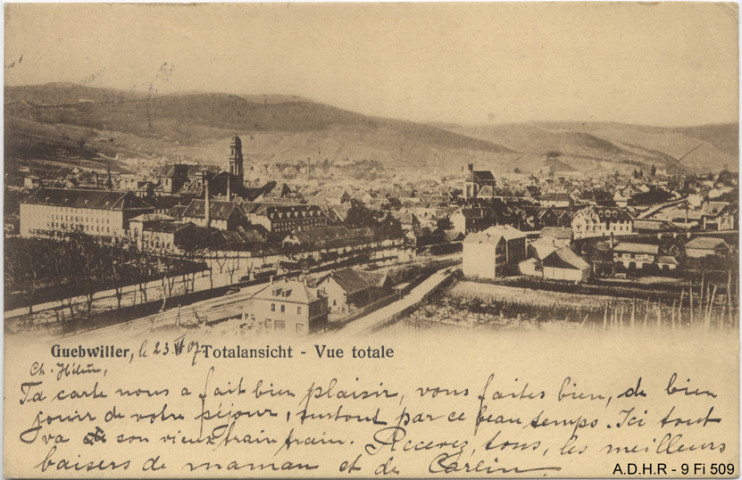 Guebwiller, le 23. VI 07 Totalansicht - Vue totale
Ch. Hélène,
Ta carte nous a fait bien plaisir, vous faites bien, de bien
jouir de votre séjour, surtout par ce beau temps. Ici tout
va son vieux train train. Recevez, tous, les meilleurs
baisers de maman et de
A.D.H.R - 9 Fi 509